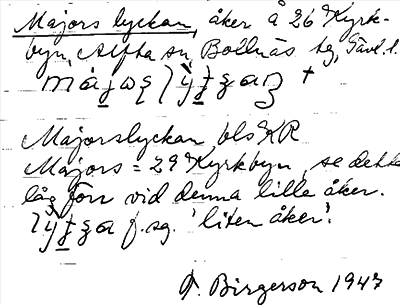 Majors lyckan, åker å 26 Kyrk-
byn, Alfta sn, Bollnäs tg, Gävl. l.
Majorslyckan, bls KR
Majors = 29 Kyrkbyn, se detta
låg förr vid denna lille åker.
f. sg. 'liten åker'.
T. Birgerson 1947